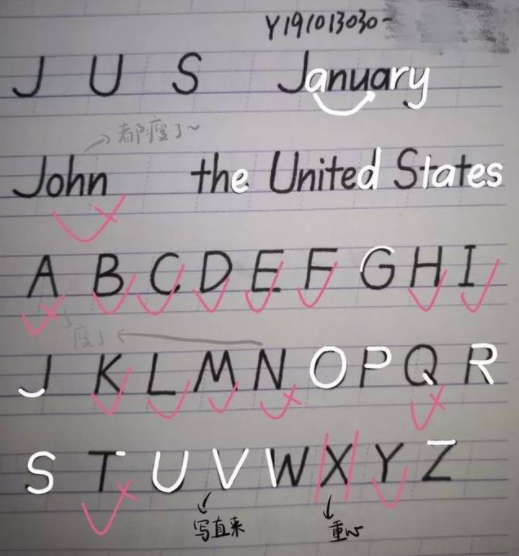 Y191013030-
J U S January
都瘦了~
John the United States
A B C D E F G H I
瘦了
J K L M N O P Q R
S T U V W X Y Z
写直来 重心